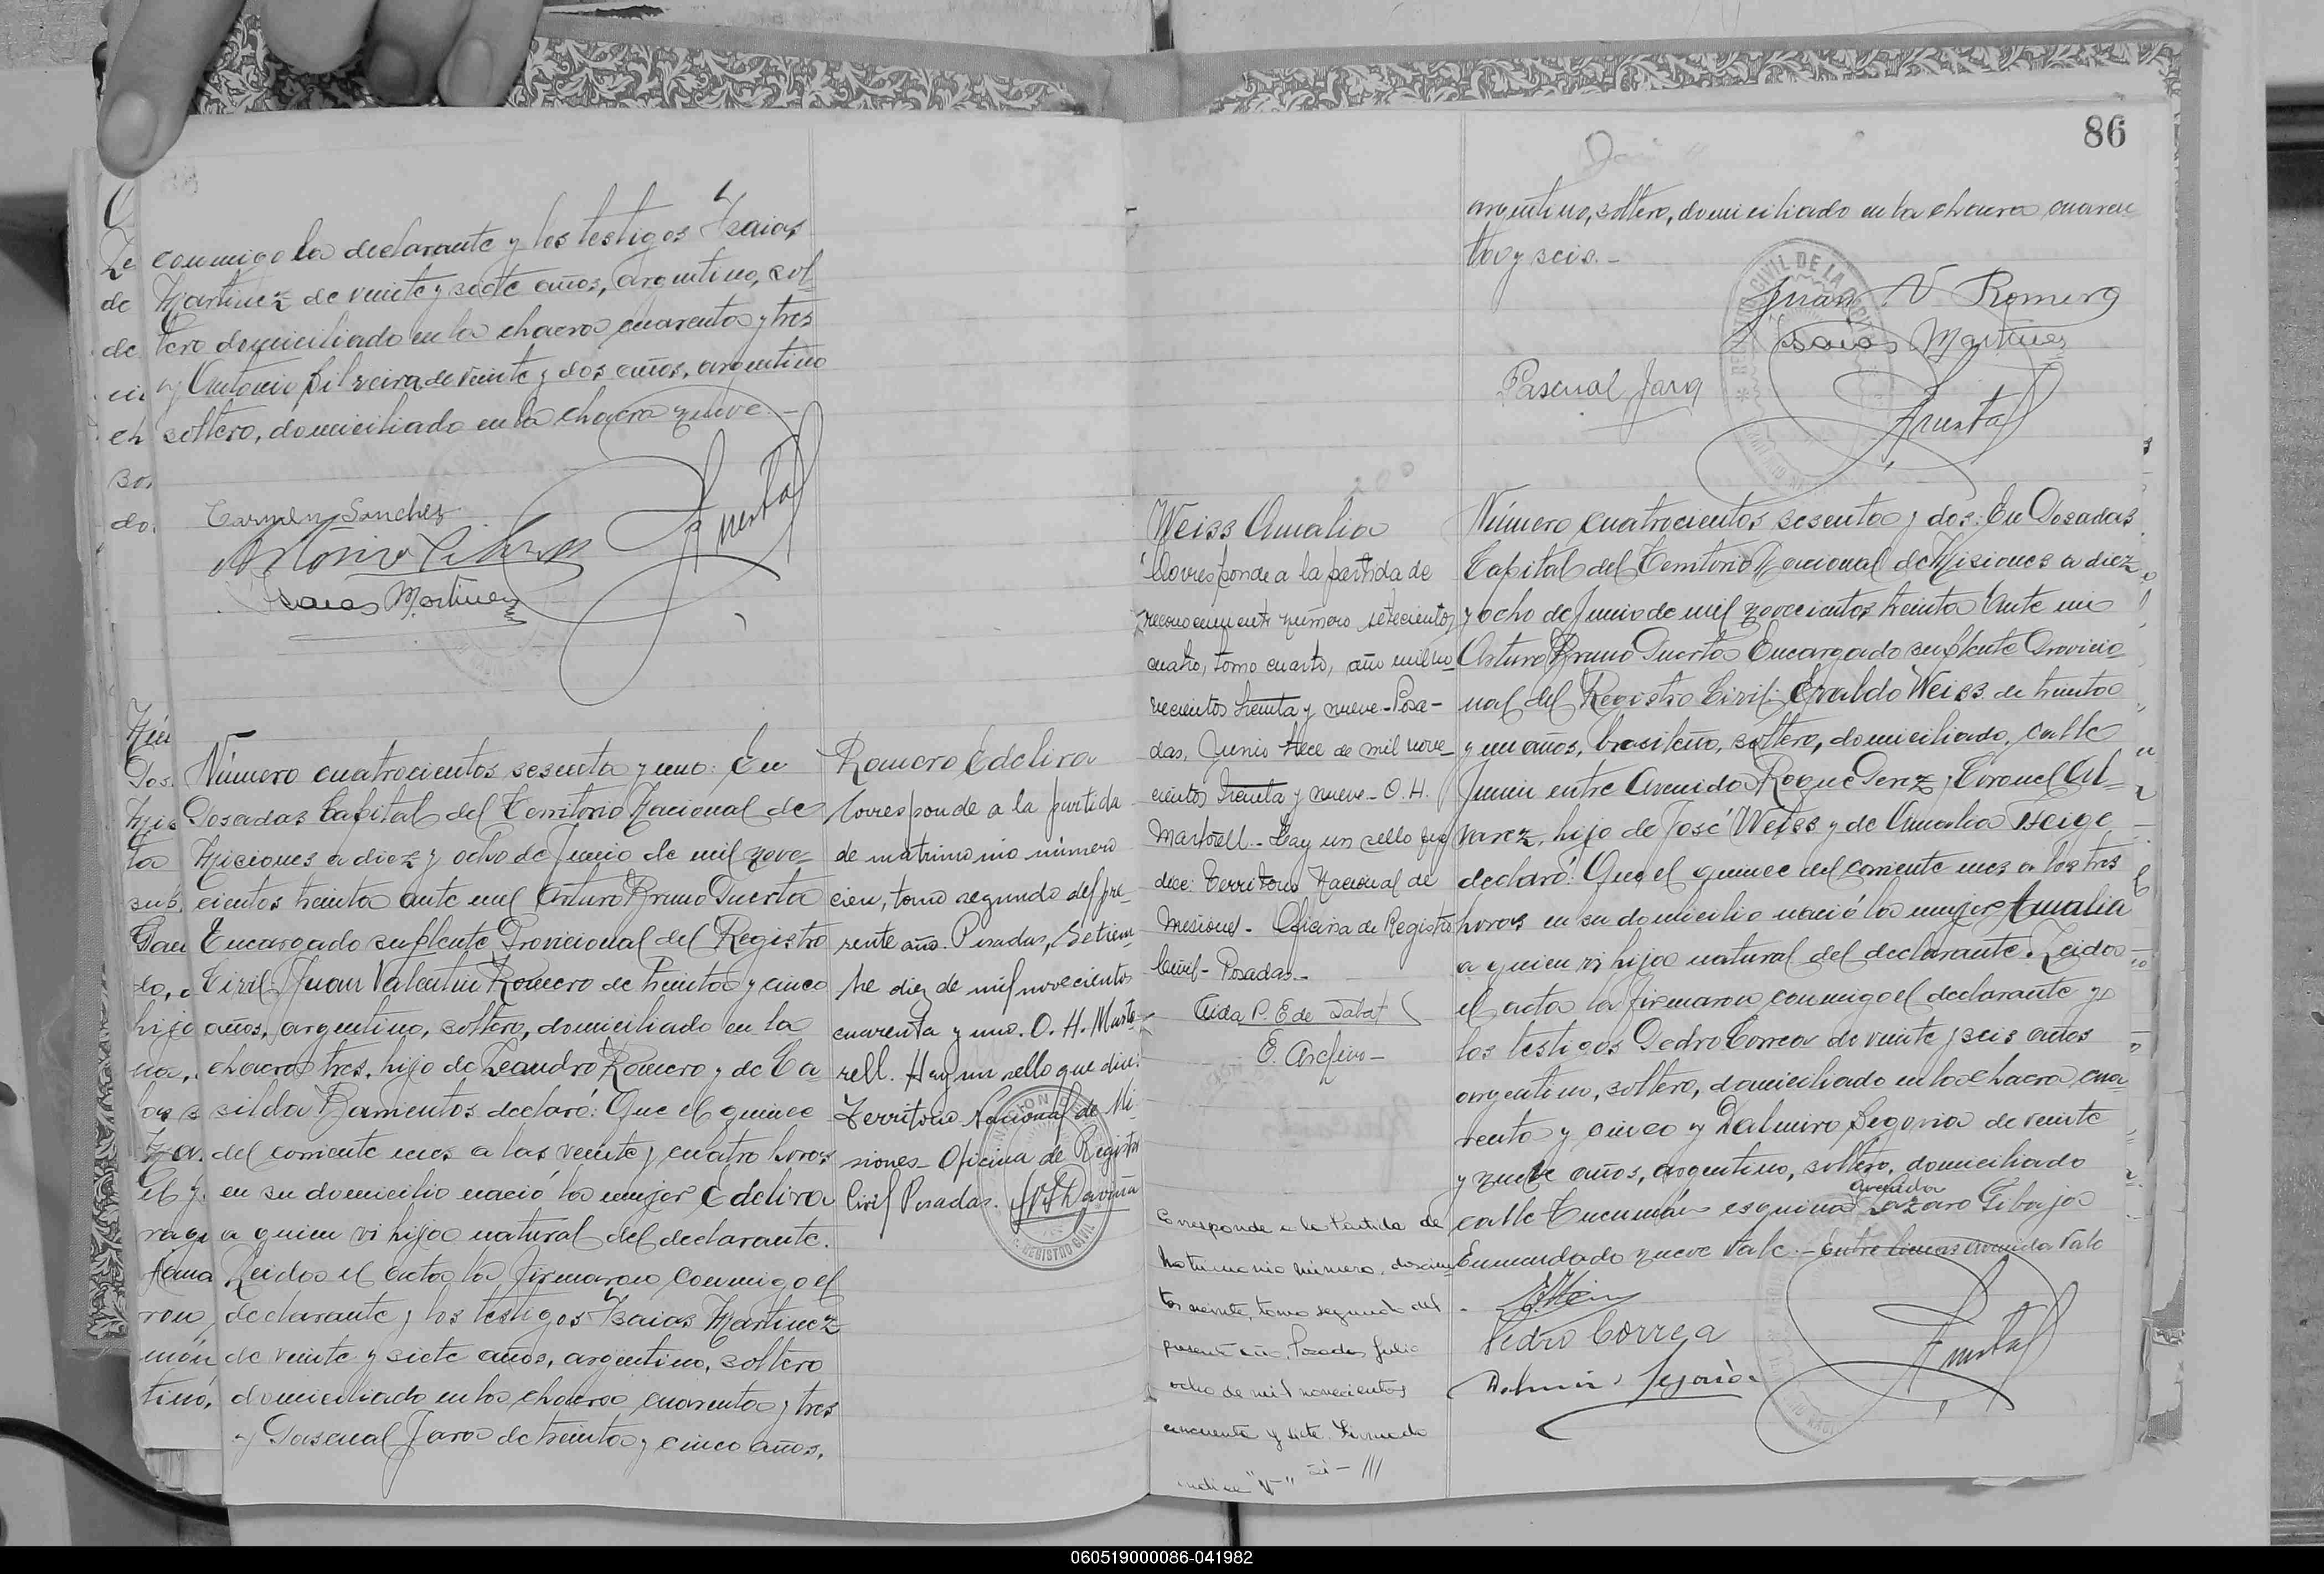 conmigo la declarante y los testigos Isaias
Martinez de veinte y siete años, argentino, sol-
tero domiciliado en la chacra cuarenta y tres
y Antonio Silveira de veinte y dos años, argentino
soltero, domiciliado en la chacra nueve.-
Carmen Sanchez
Isaias Martinez
Número cuatrocientos sesenta y uno: En
Posadas Capital del Territorio Nacional de
Misiones a diez y ocho de Junio de mil nove-
cientos treinta ante mi Arturo Bruno Puerta
Encargado suplente Provicional del Registro
Civil: Juan Valentin Romero de treinta y cinco
años, argentino, soltero, domiciliado en la
chacra tres, hijo de Leandro Romero y de Ca-
silda Barrientos declaró: Que el quince
del corriente mes a las veinte y cuatro horas
en su domicilio nació la mujer Edelira
a quien vi hija natural del declarante.
Leida el acta la firmaron conmigo el
declarante y los testigos Isaias Martinez
de veinte y siete años, argentino, soltero
domiciliado en la chacra cuarenta y tres
y Pascual Jara de treinta y cinco años,
Romero Edelira
Corresponde a la partida
de matrimonio número
cien, tomo segundo del pre-
sente año. Posadas, Setiem-
bre diez de mil novecientos
cuarenta y uno. O. H. Marto-
rell. Hay un sello que dice:
Territorio Nacional de Mi-
siones- Oficina de Registro
Civil Posadas.
86
argentino, soltero, domiciliado en la chacra cuaren
ta y seis.-
Juan V Romero
Isaias Martinez
Pascual Jara
Puerta
Weiss Amalia
Corresponde a la partida de
reconocimiento número setecientos
cuatro, tomo cuarto, año mil no-
vecientos treinta y nueve- Posa-
das, Junio trece de mil nove-
cientos treinta y nueve- O. H.
Martorell.- Hay un sello que
dice: Territorio Nacional de
Misiones- Oficina de Registro
Civil- Posadas.-
Aida P. E de Sabat
E. Archivo-
Corresponde a la Partida de
Matrimonio número, doscien-
tos veinte, tomo segundo del
presente año, Posadas Julio
ocho de mil novecientos
cincuenta y siete. Firmado
Número cuatrocientos sesenta y dos: En Posadas
Capital del Territorio Nacional de Misiones a diez
y ocho de Junio de mil novecientos treinta Ante mi
Arturo Bruno Puerta Encargado suplente Provicio-
nal del Registro Civil: Evaldo Weiss de treinta
y un años, brasileño, soltero, domiciliado, calle
Junin entre Avenida Roque Perez y Coronel Al-
varez, hijo de José Weiss y de Amalia Feige
declaró: Que el quince del corriente mes a las tres
horas en su domicilio nació la mujer Amalia
a quien vi hija natural del declarante. Leida
el acta la firmaron conmigo el declarante y
los testigos Pedro Correa de veinte y seis años
argentino, soltero, domiciliado en la chacra cua-
renta y cinco y Dalmiro Segovia de veinte
y nueve años, argentino, soltero, domiciliado
avenida
calle Tucumán esquina Lazaro Gibaja
Enmendado nueve Vale.- Entre lineas avenida Vale
Pedro Correa
Dalmiro Segovia
Puerta
060519000086-041982